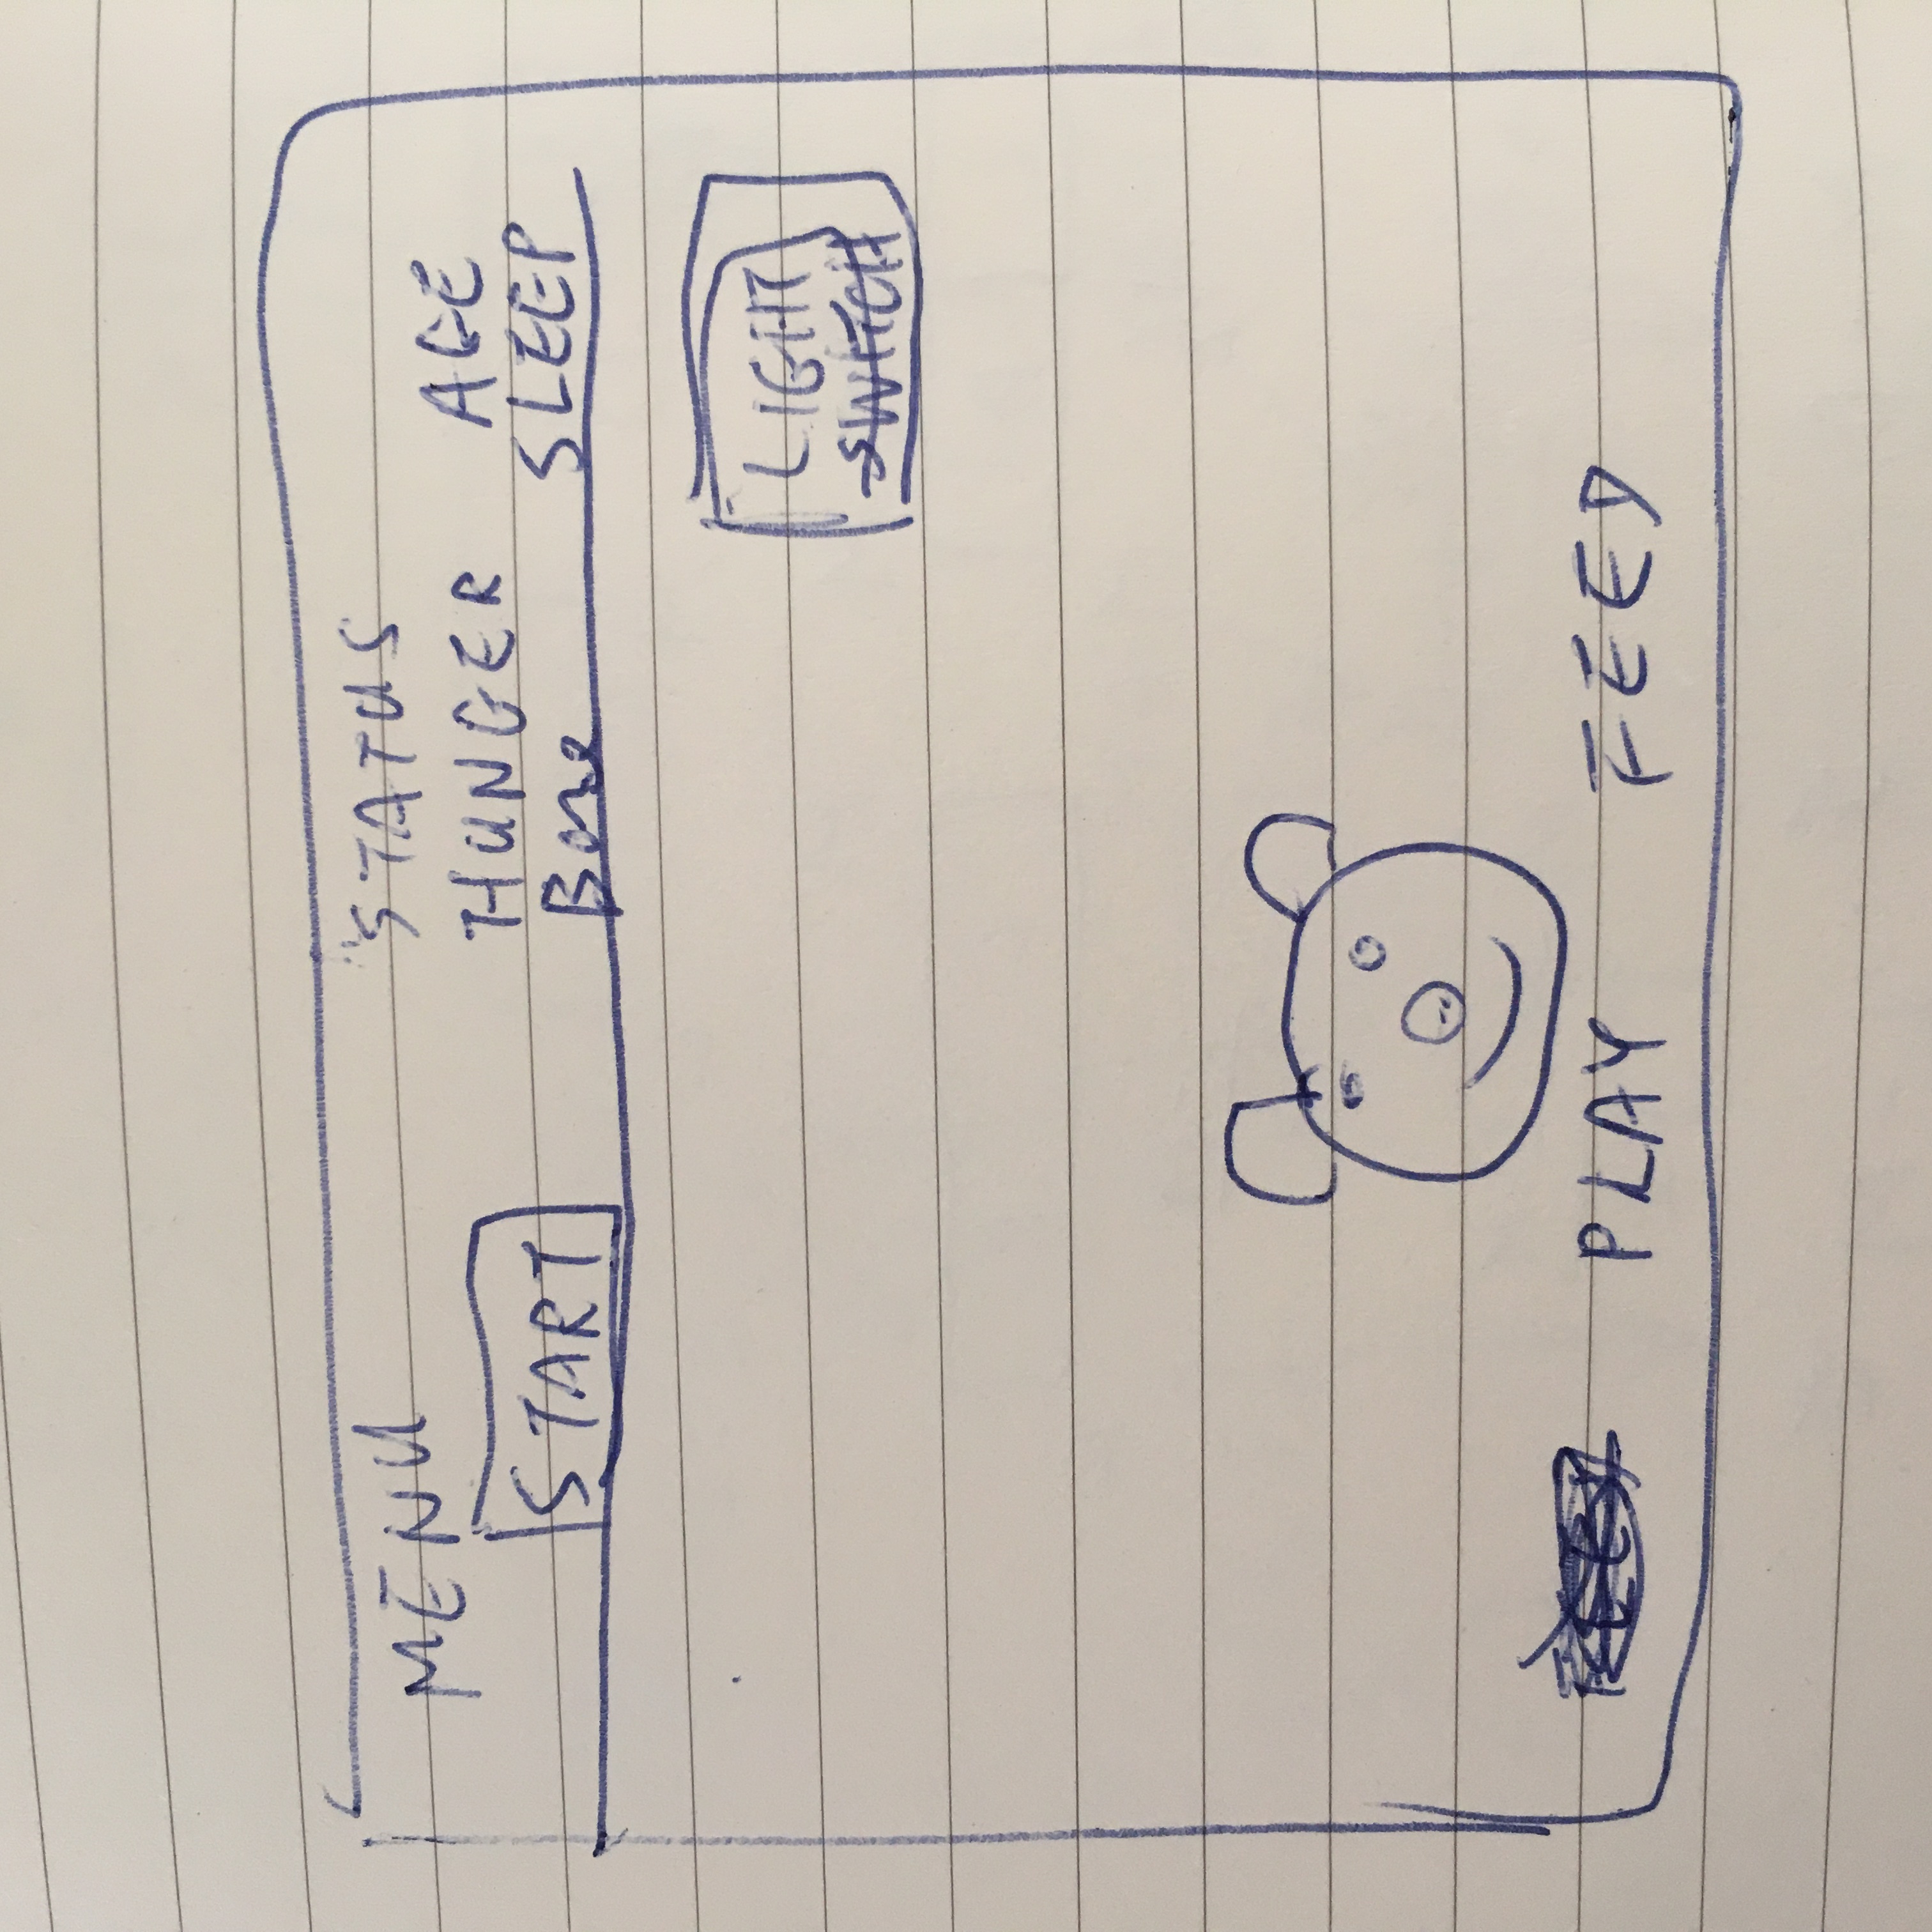 MENU
START
STATUS
HUNGER
Bore
AGE
SLEEP
LIGHT
SWITCH
FEED
PLAY
FEED